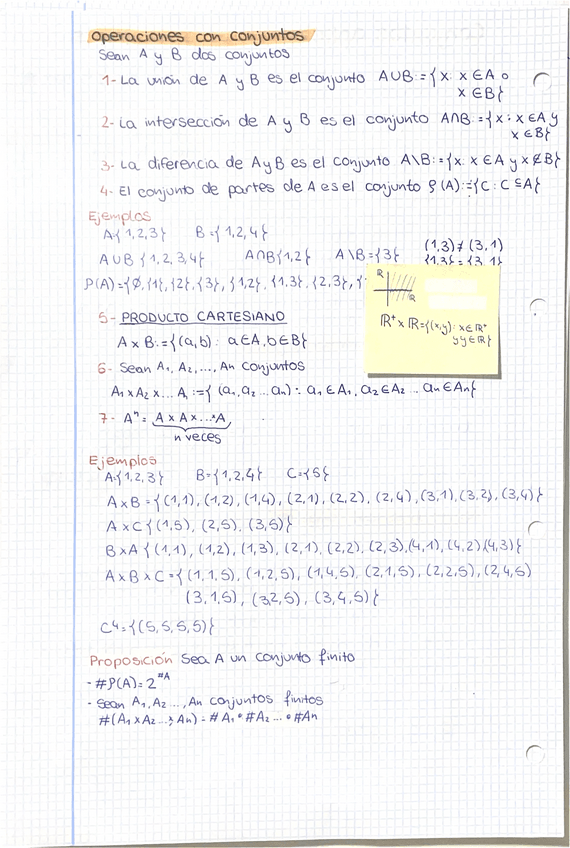 Operaciones con conjuntos
Sean A y B dos conjuntos
1- La unión de A y B es el conjunto A∪B:={x: x∈A o
x∈B}
2- La intersección de A y B es el conjunto A∩B:={x: x∈A y
x∈B}
3- La diferencia de A y B es el conjunto A\B:={x: x∈A y x∉B}
4- El conjunto de partes de A es el conjunto ρ(A):={C: C⊆A}
Ejemplos
A{1,2,3} B={1,2,4}
A∪B {1,2,3,4} A∩B{1,2} A\B={3}
(1,3)≠(3,1)
{1,3}={3,1}
ρ(A)={∅,{1},{2},{3},{1,2},{1,3},{2,3},{
R
R
R⁺xR={(x,y): x∈R⁺
y y∈R}
5- PRODUCTO CARTESIANO
A x B:={(a,b): a∈A, b∈B}
6- Sean A₁, A₂, ..., An conjuntos
A₁ x A₂ x ... A :={(a₁, a₂ ... an): a₁∈A₁, a₂∈A₂ ... an∈An}
7- Aⁿ= A x A x ... x A
n veces
Ejemplos
A={1,2,3} B={1,2,4} C={5}
A x B = {(1,1), (1,2), (1,4), (2,1), (2,2), (2,4), (3,1), (3,2), (3,4)}
A x C {(1,5), (2,5), (3,5)}
B x A {(1,1), (1,2), (1,3), (2,1), (2,2), (2,3), (4,1), (4,2) (4,3)}
A x B x C ={(1,1,5), (1,2,5), (1,4,5), (2,1,5), (2,2,5), (2,4,5)
(3,1,5), (3,2,5), (3,4,5)}
C⁴={(5,5,5,5)}
Proposición Sea A un conjunto finito
- #ρ(A)=2^#A
- Sean A₁, A₂ ..., An conjuntos finitos
#(A₁ x A₂ ... x An) = #A₁ • #A₂ ... • #An